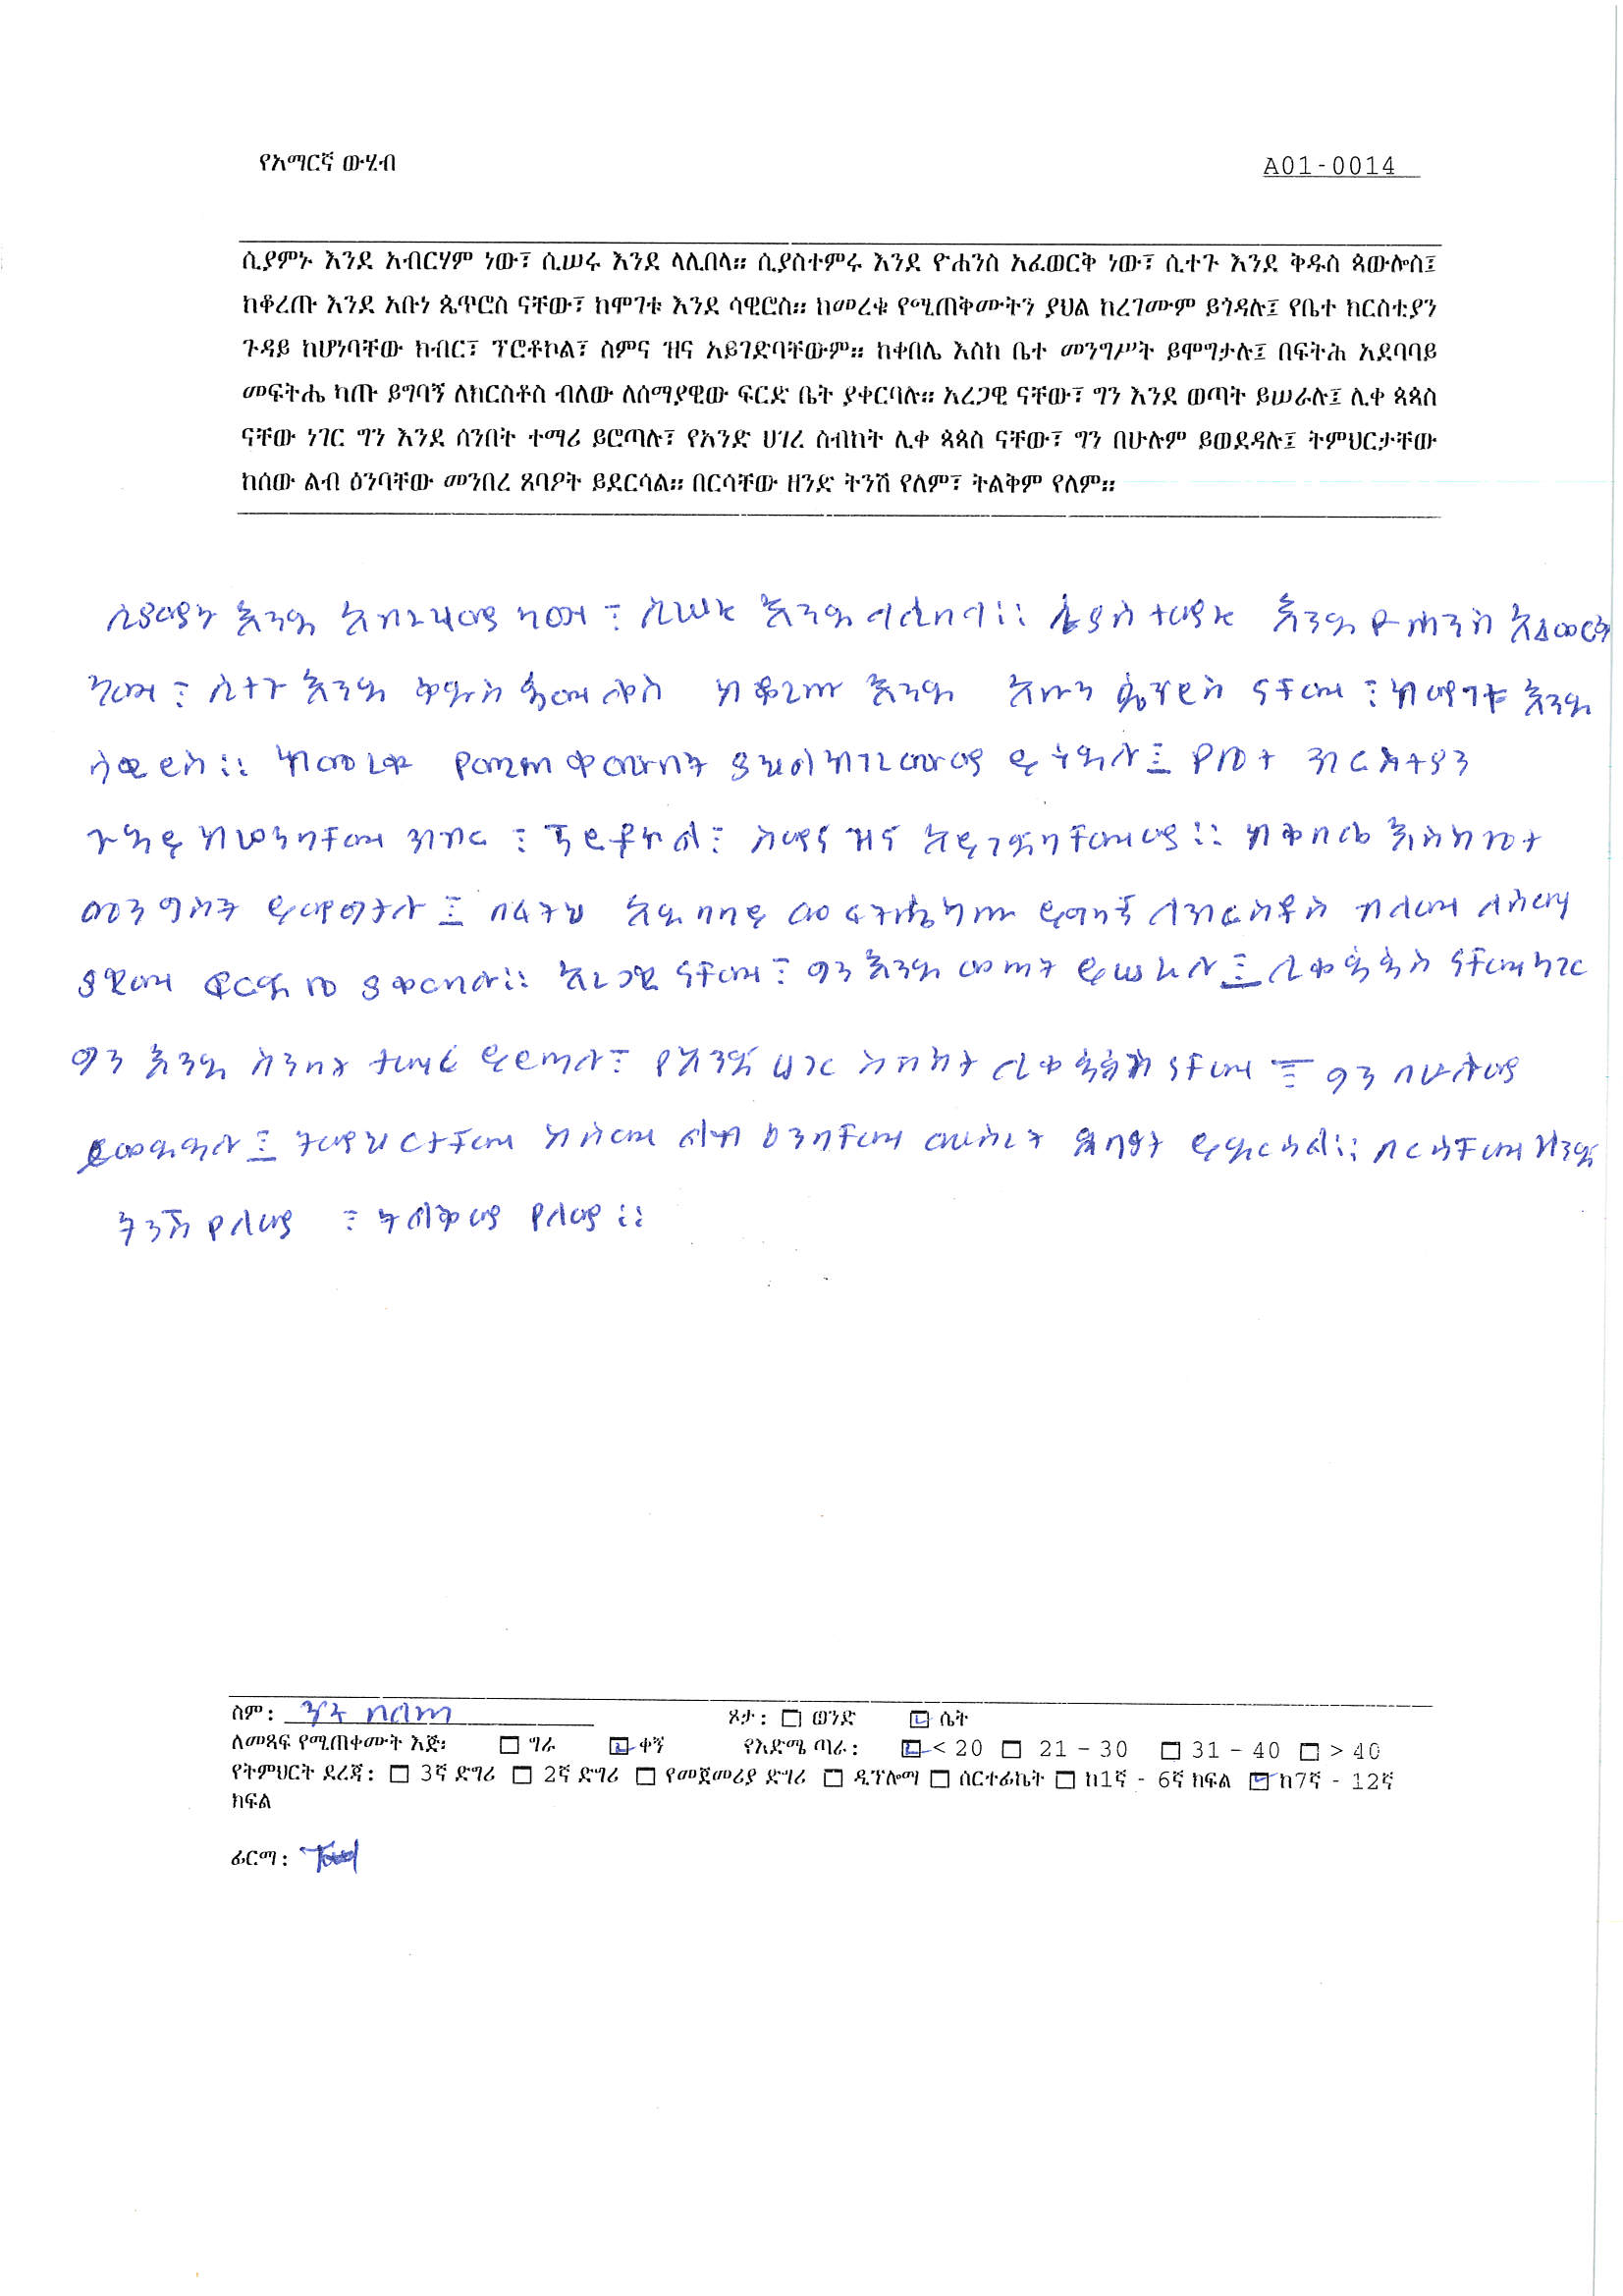 የአማርኛ ውሂብ A01-0014
ሲያምኑ እንደ አብርሃም ነው፣ ሲሠሩ እንደ ላሊበላ። ሲያስተምሩ እንደ ዮሐንስ አፈወርቅ ነው፣ ሲተጉ እንደ ቅዱስ ጳውሎስ፤
ከቆረጡ እንደ አቡነ ጴጥሮስ ናቸው፣ ከሞገቱ እንደ ሳዊሮስ። ከመረቁ የሚጠቅሙትን ያህል ከረገሙም ይጎዳሉ፤ የቤተ ክርስቲያን
ጉዳይ ከሆነባቸው ክብር፣ ፕሮቶኮል፣ ስምና ዝና አይገድባቸውም። ከቀበሌ እስከ ቤተ መንግሥት ይሞግታሉ፤ በፍትሕ አደባባይ
መፍትሔ ካጡ ይግባኝ ለክርስቶስ ብለው ለሰማያዊው ፍርድ ቤት ያቀርባሉ። አረጋዊ ናቸው፣ ግን እንደ ወጣት ይሠራሉ፤ ሊቀ ጳጳስ
ናቸው ነገር ግን እንደ ሰንበት ተማሪ ይሮጣሉ፣ የአንድ ሀገረ ስብከት ሊቀ ጳጳስ ናቸው፣ ግን በሁሉም ይወደዳሉ፤ ትምህርታቸው
ከሰው ልብ ዕንባቸው መንበረ ጸባዖት ይደርሳል። በርሳቸው ዘንድ ትንሽ የለም፣ ትልቅም የለም።
ሲያምኑ እንደ አብርሃም ነው፣ ሲሠሩ እንደ ላሊበላ። ሲያስተምሩ እንደ ዮሐንስ አፈወርቅ
ነው፣ ሲተጉ እንደ ቅዱስ ጳውሎስ ከቆረጡ እንደ አቡነ ጴጥሮስ ናቸው፣ ከሞገቱ እንደ
ሳዊሮስ። ከመረቁ የሚጠቀሙበት ያህል ከገረሙም ይጎዳሉ፤ የቤተ ክርስትያን
ጉዳይ ከሆነባቸው ክብር፣ ፕሮቶኮል፣ ስምና ዝና አይገድባቸውም። ከቀበሌ እስከ ቤተ
መንግስት ይሞግታሉ፤ በፍትህ አደባባይ መፍትሔ ካጡ ይግባኝ ለክርስቶስ ብለው ለሰማ
ያዊው ፍርድ ቤ ያቀርባሉ። አረጋዊ ናቸው፣ ግን እንደ ወጣት ይሠራሉ፤ ሊቀ ጳጳስ ናቸው ነገር
ግን እንደ ሰንበት ተማሪ ይሮጣሉ፣ የአንድ ሀገር ስብከት ሊቀ ጳጳስ ናቸው፣ ግን በሁሉም
ይወደዳሉ፤ ትምህርታቸው ከሰው ልብ ዕንባቸው ጸባዖት ይደርሳል። በርሳቸው ዘንድ
ትንሽ የለም፣ ትልቅም የለም።
ስም: ጾታ: ወንድ ሴት
ለመጻፍ የሚጠቀሙት እጅ፡ ግራ ቀኝ የእድሜ ጣራ: < 20 21 - 30 31 - 40 > 40
የትምህርት ደረጃ: 3ኛ ድግሪ 2ኛ ድግሪ የመጀመሪያ ድግሪ ዲፕሎማ ሰርተፊኬት ከ1ኛ - 6ኛ ክፍል ከ7ኛ - 12ኛ
ክፍል
ፊርማ: